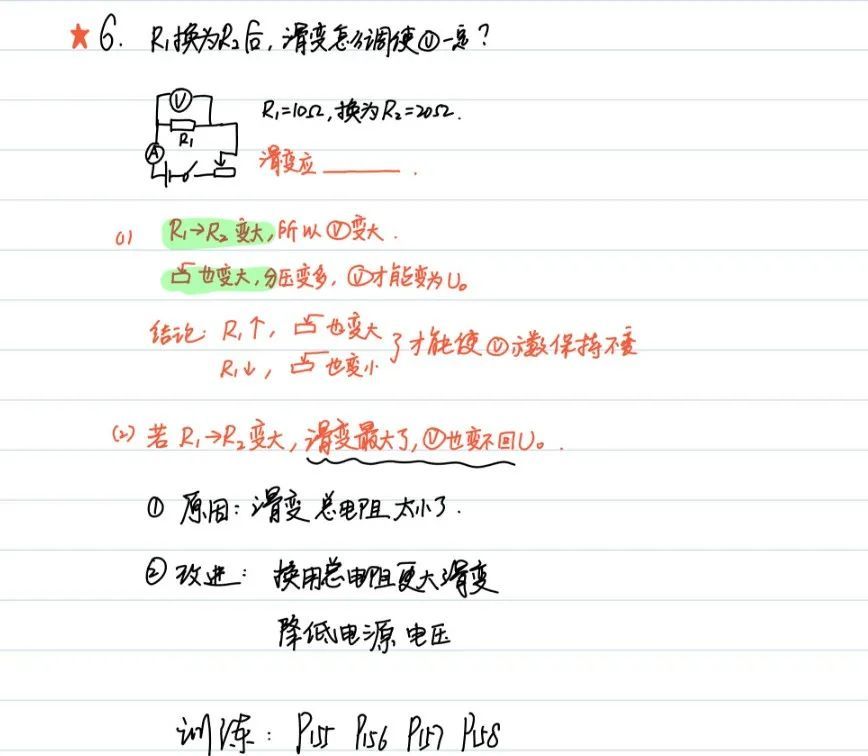 ★ 6. R₁换为R₂后,滑变怎么调使Ⓥ一定?
V
R₁
A
R₁=10Ω,换为R₂=20Ω.
滑变应______.
(1) R₁→R₂变大,所以Ⓥ变大.
也变大,分压变多,Ⓥ才能变为U₀
结论: R₁↑, 也变大
R₁↓, 也变小
}才能使Ⓥ示数保持不变
(2) 若R₁→R₂变大,滑变最大了,Ⓥ也变不回U₀.
① 原因:滑变总电阻太小了.
② 改进: 换用总电阻更大滑变
降低电源电压
训练: P155 P156 P157 P158